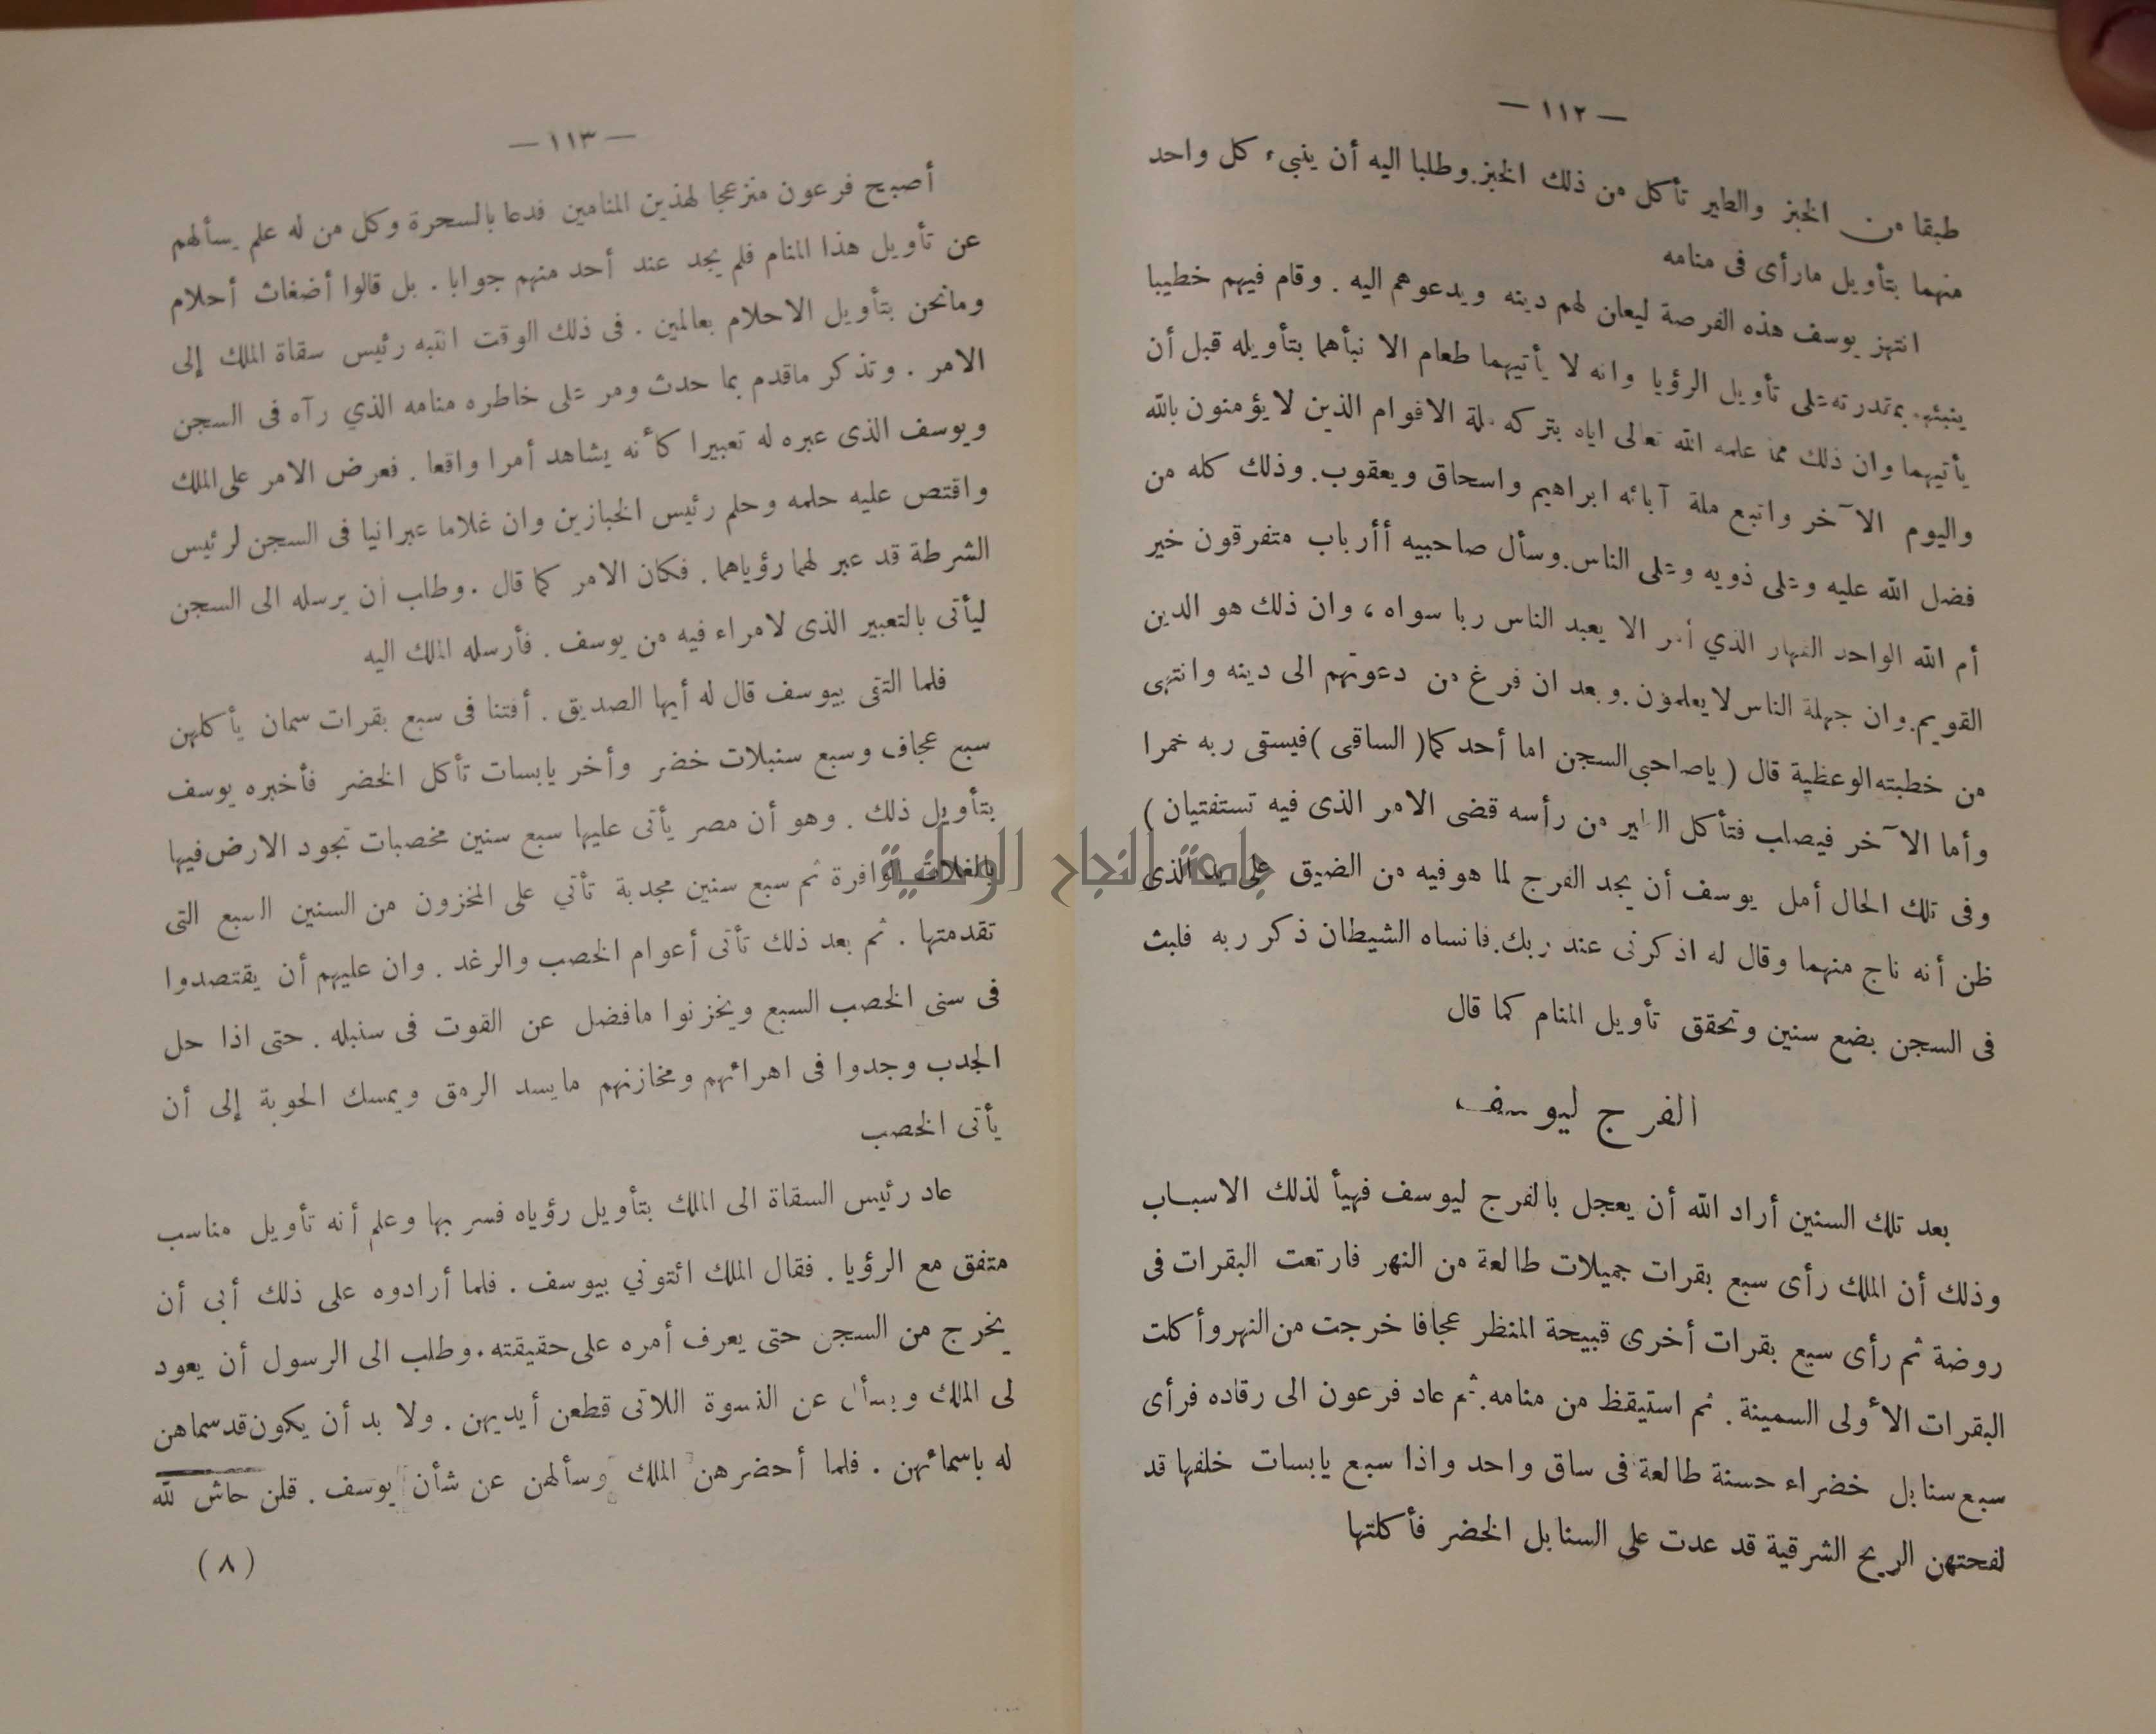 — ١١٢ —
طبقا من الخبز والطير تأكل من ذلك الخبز. وطلبا اليه أن ينبىء كل واحد
منهما بتأويل مارأى فى منامه
انتهز يوسف هذه الفرصة ليعلن لهم دينه ويدعوهم اليه . وقام فيهم خطيبا
بمقدرته على تأويل الرؤيا وانه لا يأتيهما طعام الا نبأهما بتأويله قبل أن
يأتيهما وان ذلك مما علمه الله تعالى اياه بتركه ملة الاقوام الذين لا يؤمنون بالله
واليوم الآخر واتبع ملة آبائه ابراهيم واسحاق ويعقوب. وذلك كله من
فضل الله عليه وعلى ذويه وعلى الناس. وسأل صاحبيه أأرباب متفرقون خير
أم الله الواحد القهار الذي أمر الا يعبد الناس ربا سواه ، وان ذلك هو الدين
القويم. وان جهلة الناس لا يعلمون. وبعد ان فرغ من دعوتهم الى دينه وانتهى
من خطبته الوعظية قال ( ياصاحبي السجن اما أحدكما ( الساقى ) فيسقى ربه خمرا
وأما الآخر فيصلب فتأكل الطير من رأسه قضى الامر الذى فيه تستفتيان )
وفى تلك الحال أمل يوسف أن يجد الفرج لما هو فيه من الضيق على يد الذى
ظن أنه ناج منهما وقال له اذكرنى عند ربك. فانساه الشيطان ذكر ربه فلبث
فى السجن بضع سنين وتحقق تأويل المنام كما قال
الفرج ليوسف
بعد تلك السنين أراد الله أن يعجل بالفرج ليوسف فهيأ لذلك الاسباب
وذلك أن الملك رأى سبع بقرات جميلات طالعة من النهر فارتعت البقرات فى
روضة ثم رأى سبع بقرات أخرى قبيحة المنظر عجافا خرجت من النهر وأكلت
البقرات الأولى السمينة . ثم استيقظ من منامه. ثم عاد فرعون الى رقاده فرأى
سبع سنابل خضراء حسنة طالعة فى ساق واحد واذا سبع يابسات خلفها قد
لفحتهن الريح الشرقية قد عدت على السنابل الخضر فأكلتها
— ١١٣ —
أصبح فرعون منزعجا لهذين المنامين فدعا بالسحرة وكل من له علم يسألهم
عن تأويل هذا المنام فلم يجد عند أحد منهم جوابا . بل قالوا أضغاث أحلام
ومانحن بتأويل الاحلام بعالمين . فى ذلك الوقت انتبه رئيس سقاة الملك إلى
الامر . وتذكر ماقدم بما حدث ومر على خاطره منامه الذي رآه فى السجن
ويوسف الذى عبره له تعبيرا كأنه يشاهد أمرا واقعا . فعرض الامر على الملك
واقتص عليه حلمه وحلم رئيس الخبازين وان غلاما عبرانيا فى السجن لرئيس
الشرطة قد عبر لهما رؤياهما . فكان الامر كما قال . وطلب أن يرسله الى السجن
ليأتى بالتعبير الذى لامراء فيه من يوسف . فأرسله الملك اليه
فلما التقى بيوسف قال له أيها الصديق . أفتنا فى سبع بقرات سمان يأكلهن
سبع عجاف وسبع سنبلات خضر وأخر يابسات تأكل الخضر فأخبره يوسف
بتأويل ذلك . وهو أن مصر يأتى عليها سبع سنين مخصبات تجود الارض فيها
بالغلات الوافرة ثم سبع سنين مجدبة تأتي على المخزون من السنين السبع التى
تقدمتها . ثم بعد ذلك تأتى أعوام الخصب والرغد . وان عليهم أن يقتصدوا
فى سنى الخصب السبع ويخزنوا مافضل عن القوت فى سنبله . حتى اذا حل
الجدب وجدوا فى اهرائهم ومخازنهم مايسد الرمق ويمسك الحوبة إلى أن
يأتى الخصب
عاد رئيس السقاة الى الملك بتأويل رؤياه فسر بها وعلم أنه تأويل مناسب
متفق مع الرؤيا . فقال الملك ائتوني بيوسف . فلما أرادوه على ذلك أبى أن
يخرج من السجن حتى يعرف أمره على حقيقته . وطلب الى الرسول أن يعود
لى الملك ويسأل عن النسوة اللاتى قطعن أيديهن . ولا بد أن يكون قد سماهن
له باسمائهن . فلما أحضرهن الملك وسألهن عن شأن يوسف . قلن حاش لله
( ٨ )
جامعة النجاح الوطنية